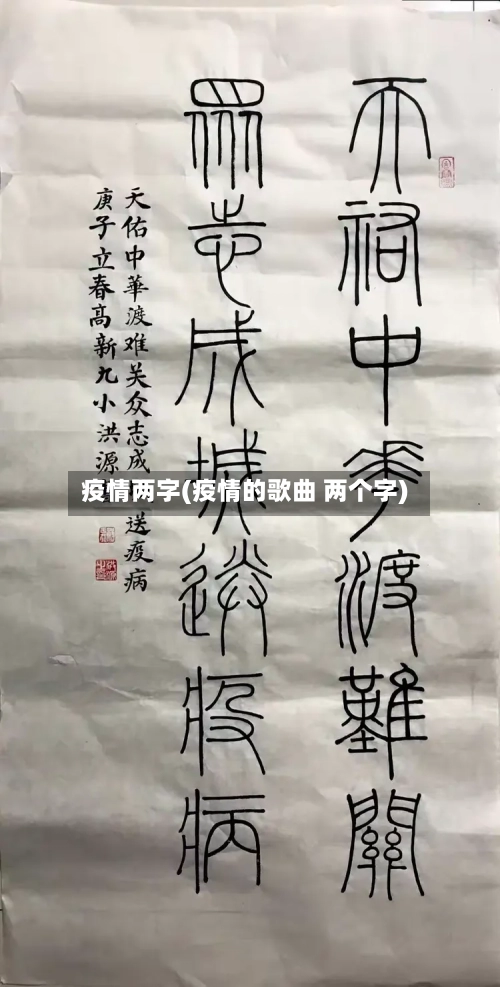 天祐中華渡難關
眾志成城送疫病
天佑中華渡难关众志成
送疫病
庚子立春高新九小洪源
疫情两字(疫情的歌曲 两个字)